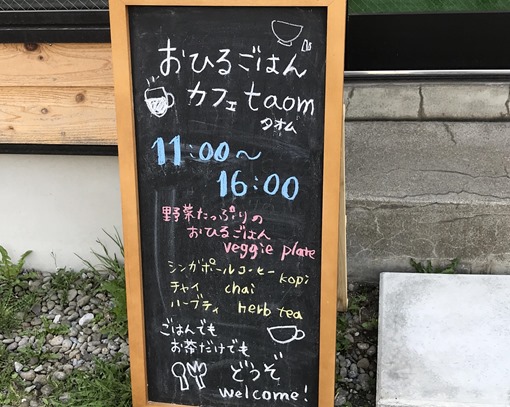 おひるごはん
カフェtaom
タオム
11:00〜
16:00
野菜たっぷりの
おひるごはん
veggie plate
シンガポールコーヒー kopi
チャイ chai
ハーブティ herb tea
ごはんでも
お茶だけでも
どうぞ
welcome!